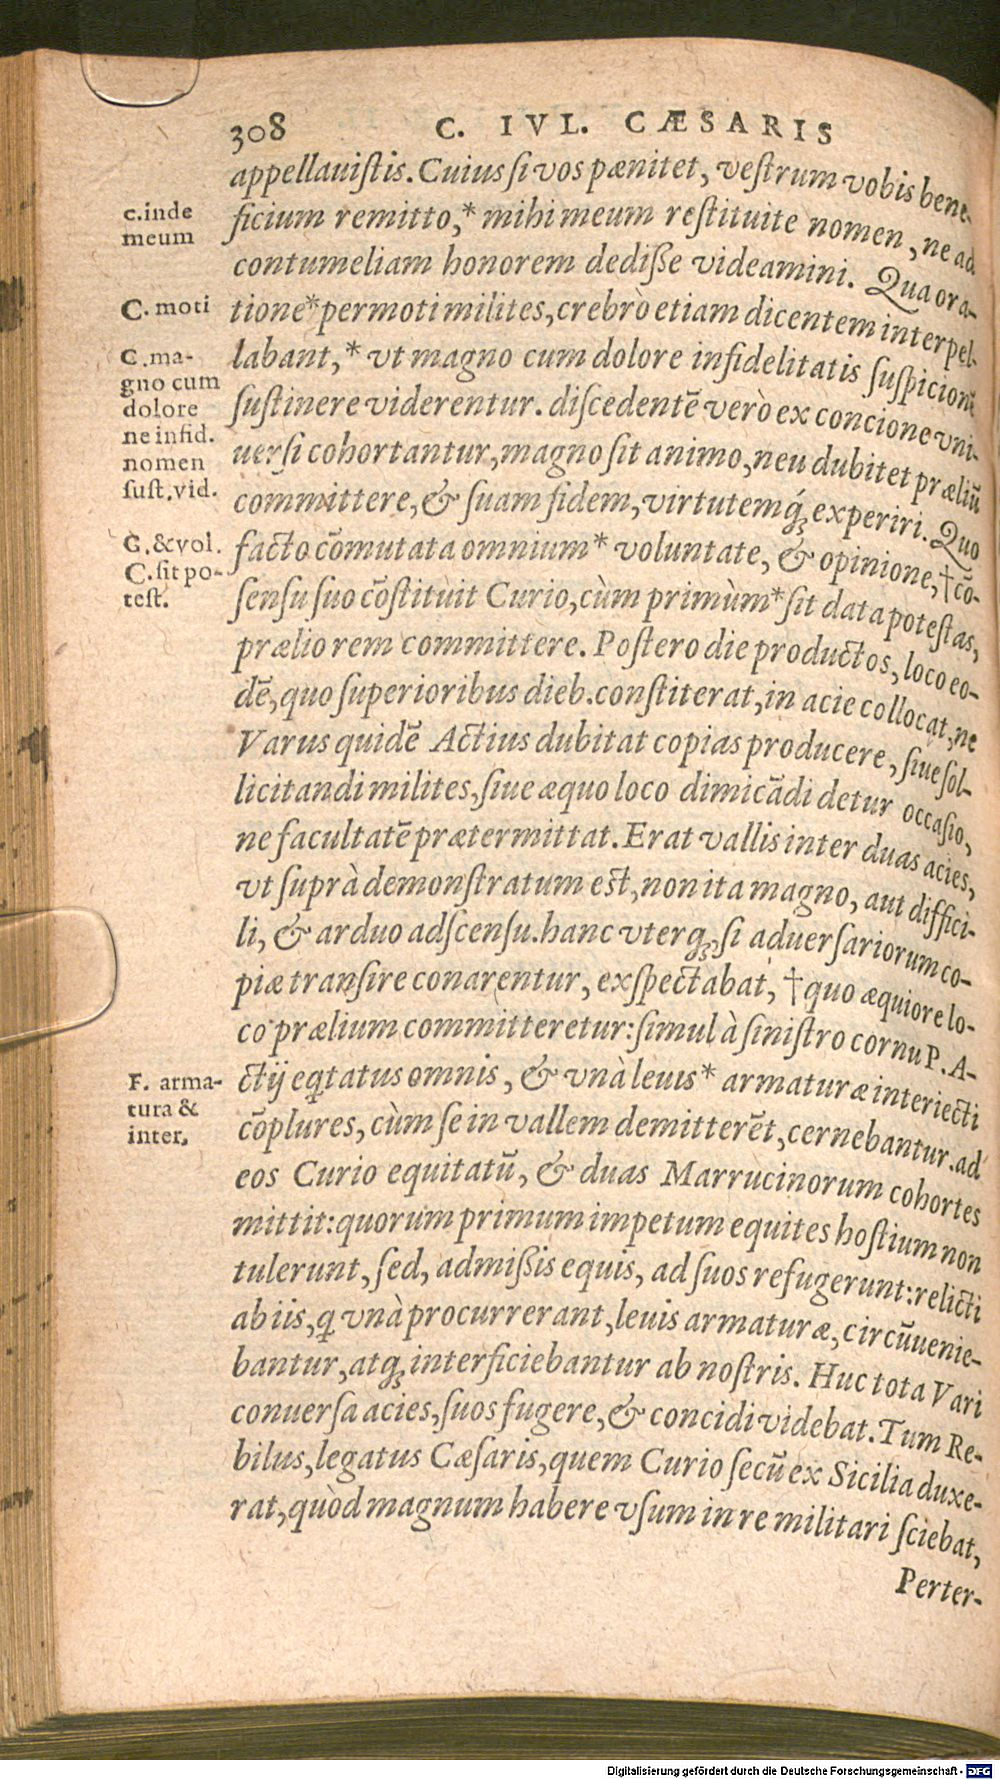 308 C. IVL. CÆSARIS
appellauiſtis. Cuius ſi vos pænitet, veſtrum vobis bene-
ficium remitto,* mihi meum reſtituite nomen, ne ad
contumeliam honorem dediſſe videamini. Qua ora-
tione* permoti milites, crebrò etiam dicentem interpel-
labant,* vt magno cum dolore infidelitatis ſuſpicionē
ſuſtinere viderentur. diſcedentē verò ex concione vni-
uerſi cohortantur, magno ſit animo, neu dubitet præliū
committere, & ſuam fidem, virtutemq́ꝫ experiri. Quo
facto cōmutata omnium* voluntate, & opinione, † cō-
ſenſu ſuo cōſtituit Curio, cùm primùm* ſit data poteſtas,
prælio rem committere. Poſtero die productos, loco eo-
dē, quo ſuperioribus dieb. conſtiterat, in acie collocat, ne
Varus quidē Actius dubitat copias producere, ſiue ſol-
licitandi milites, ſiue æquo loco dimicādi detur occaſio,
ne facultatē prætermittat. Erat vallis inter duas acies,
vt ſuprà demonſtratum eſt, non ita magno, aut diffici-
li, & arduo adſcenſu. hanc vterqꝫ, ſi aduerſariorum co-
piæ tranſire conarentur, exſpectabat, † quo æquiore lo-
co prælium committeretur: ſimul à ſiniſtro cornu P. A-
ctij eq̃tatus omnis, & vnà leuis* armaturæ interiecti
cōplures, cùm ſe in vallem demitterēt, cernebantur. ad
eos Curio equitatū, & duas Marrucinorum cohortes
mittit: quorum primum impetum equites hoſtium non
tulerunt, ſed, admiſſis equis, ad ſuos refugerunt: relicti
ab iis, q̃ vnà procurrerant, leuis armaturæ, circūuenie-
bantur, atqꝫ interficiebantur ab noſtris. Huc tota Vari
conuerſa acies, ſuos fugere, & concidi videbat. Tum Re-
bilus, legatus Cæſaris, quem Curio ſecū ex Sicilia duxe-
rat, quòd magnum habere vſum in re militari ſciebat,
Perter-
c. inde
meum
C. moti
C. ma-
gno cum
dolore
ne infid.
nomen
ſuſt. vid.
G. & vol.
C. ſit po-
teſt.
F. arma-
tura &
inter.
Digitalisierung gefördert durch die Deutsche Forschungsgemeinschaft - DFG